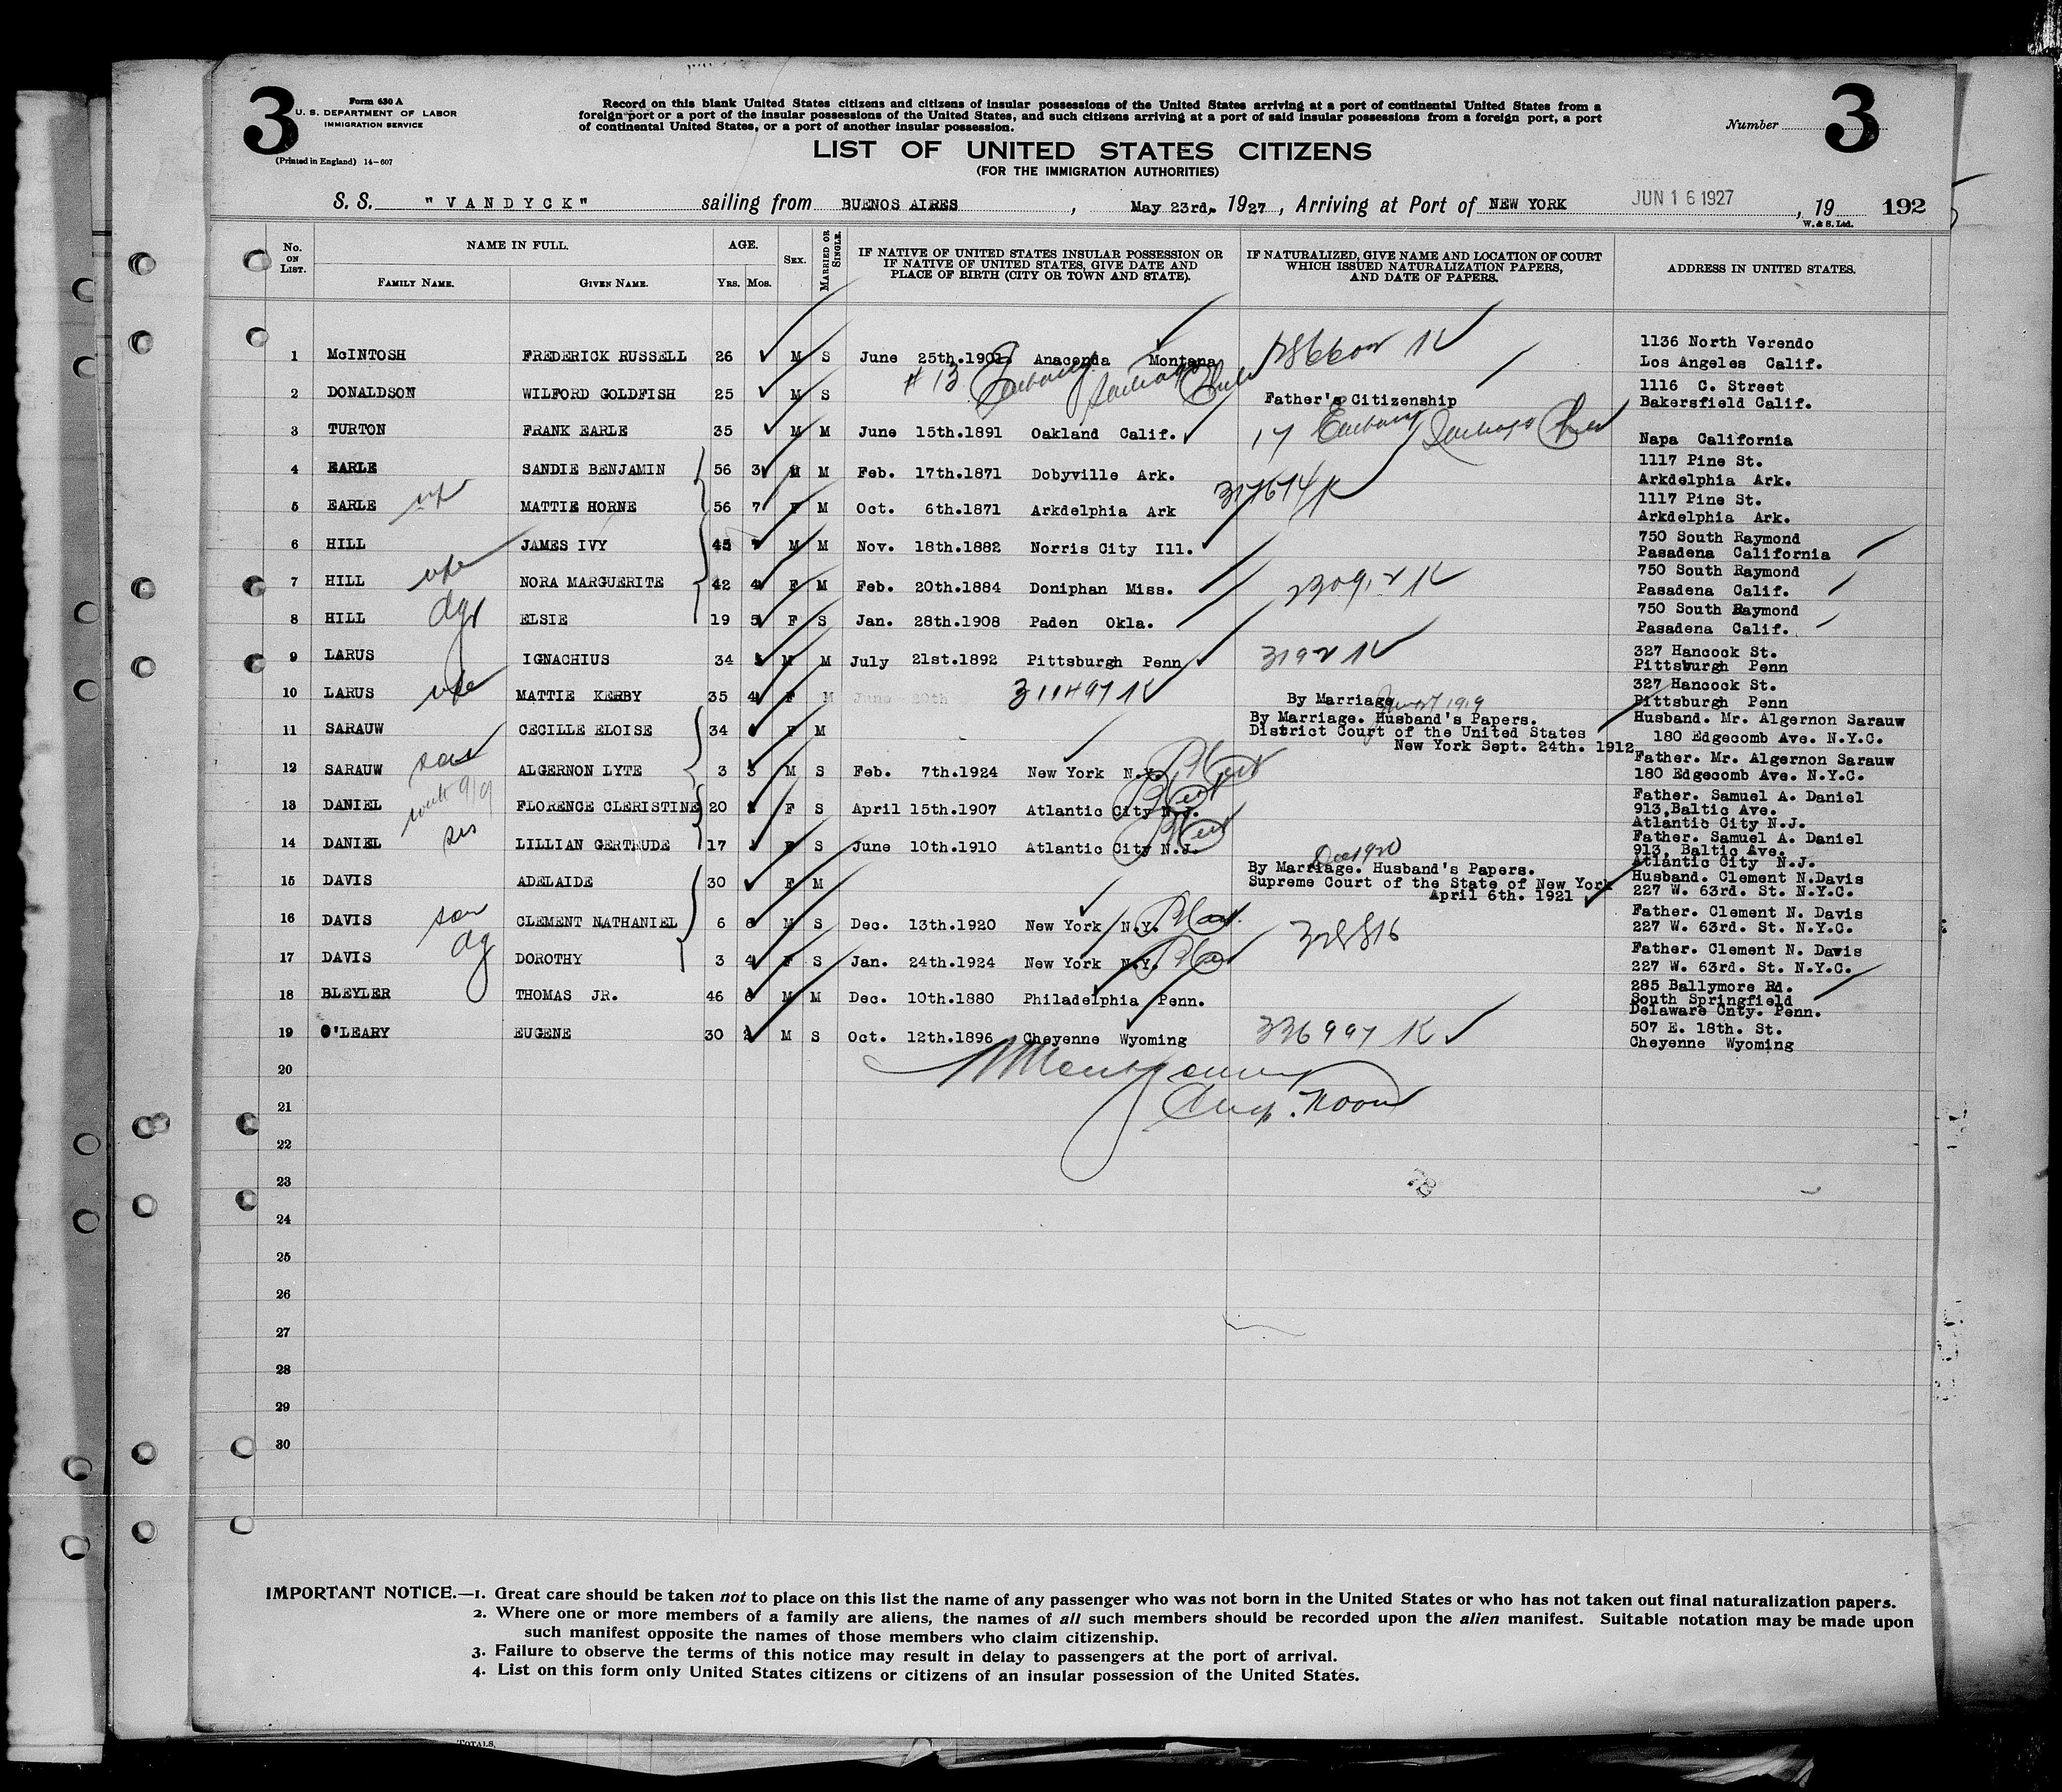 3
Form 630 A
U. S. DEPARTMENT OF LABOR
IMMIGRATION SERVICE
(Printed in England) 14-607
Record on this blank United States citizens and citizens of insular possessions of the United States arriving at a port of continental United States from a
foreign port or a port of the insular possessions of the United States, and such citizens arriving at a port of said insular possessions from a foreign port, a port
of continental United States, or a port of another insular possession.
Number 3
LIST OF UNITED STATES CITIZENS
(FOR THE IMMIGRATION AUTHORITIES)
S. S. "VANDYCK" sailing from BUENOS AIRES, May 23rd, 1927, Arriving at Port of NEW YORK JUN 16 1927, 19 192
W. & S. Ltd.
No. ON LIST. NAME IN FULL. FAMILY NAME. GIVEN NAME. AGE. YRS. MOS. SEX. MARRIED OR SINGLE.
IF NATIVE OF UNITED STATES INSULAR POSSESSION OR
IF NATIVE OF UNITED STATES, GIVE DATE AND
PLACE OF BIRTH (CITY OR TOWN AND STATE).
IF NATURALIZED, GIVE NAME AND LOCATION OF COURT
WHICH ISSUED NATURALIZATION PAPERS,
AND DATE OF PAPERS.
ADDRESS IN UNITED STATES.
1 McINTOSH FREDERICK RUSSELL 26 M S June 25th.1901 Anaconda Montana 1136 North Verendo
Los Angeles Calif.
2 DONALDSON WILFORD GOLDFISH 25 M S # 13 Embassy Santiago Chile Father's Citizenship 1116 C. Street
Bakersfield Calif.
3 TURTON FRANK EARLE 35 M M June 15th.1891 Oakland Calif. 17 Embassy Santiago Chile Napa California
4 EARLE SANDIE BENJAMIN 56 3 M M Feb. 17th.1871 Dobyville Ark. 1117 Pine St.
Arkdelphia Ark.
5 EARLE MATTIE HORNE 56 7 F M Oct. 6th.1871 Arkdelphia Ark 1117 Pine St.
Arkdelphia Ark.
6 HILL JAMES IVY 45 M M Nov. 18th.1882 Norris City Ill. 750 South Raymond
Pasadena California
7 HILL NORA MARGUERITE 42 4 F M Feb. 20th.1884 Doniphan Miss. 750 South Raymond
Pasadena Calif.
8 HILL ELSIE 19 5 F S Jan. 28th.1908 Paden Okla. 750 South Raymond
Pasadena Calif.
9 LARUS IGNACHIUS 34 M M July 21st.1892 Pittsburgh Penn 3192 K 327 Hancock St.
Pittsburgh Penn
10 LARUS wife MATTIE KERBY 35 4 F M June 20th 311497 K By Marriage 1919 327 Hancock St.
Pittsburgh Penn
11 SARAUW CECILLE ELOISE 34 F M By Marriage. Husband's Papers.
District Court of the United States
New York Sept. 24th. 1912 Husband. Mr. Algernon Sarauw
180 Edgecomb Ave. N.Y.C.
12 SARAUW son ALGERNON LYTE 3 3 M S Feb. 7th.1924 New York N.Y. Father. Mr. Algernon Sarauw
180 Edgecomb Ave. N.Y.C.
13 DANIEL FLORENCE CLERISTINE 20 F S April 15th.1907 Atlantic City N.J. Father. Samuel A. Daniel
913, Baltic Ave.
Atlantic City N.J.
14 DANIEL sis LILLIAN GERTRUDE 17 F S June 10th.1910 Atlantic City N.J. Father. Samuel A. Daniel
913, Baltic Ave.
Atlantic City N.J.
15 DAVIS ADELAIDE 30 F M Dec 1920
By Marriage. Husband's Papers.
Supreme Court of the State of New York
April 6th. 1921 Husband. Clement N.Davis
227 W. 63rd. St. N.Y.C.
16 DAVIS son CLEMENT NATHANIEL 6 6 M S Dec. 13th.1920 New York N.Y. Father. Clement N. Davis
227 W. 63rd. St. N.Y.C.
17 DAVIS dg DOROTHY 3 4 F S Jan. 24th.1924 New York N.Y. Father. Clement N. Davis
227 W. 63rd. St. N.Y.C.
18 BLEYLER THOMAS JR. 46 6 M M Dec. 10th.1880 Philadelphia Penn. 285 Ballymore Rd.
South Springfield
Delaware Cnty. Penn.
19 O'LEARY EUGENE 30 2 M S Oct. 12th.1896 Cheyenne Wyoming 336997 K 507 E. 18th. St.
Cheyenne Wyoming
20
21
22
23
24
25
26
27
28
29
30
IMPORTANT NOTICE.—1. Great care should be taken not to place on this list the name of any passenger who was not born in the United States or who has not taken out final naturalization papers.
2. Where one or more members of a family are aliens, the names of all such members should be recorded upon the alien manifest. Suitable notation may be made upon
such manifest opposite the names of those members who claim citizenship.
3. Failure to observe the terms of this notice may result in delay to passengers at the port of arrival.
4. List on this form only United States citizens or citizens of an insular possession of the United States.
TOTALS